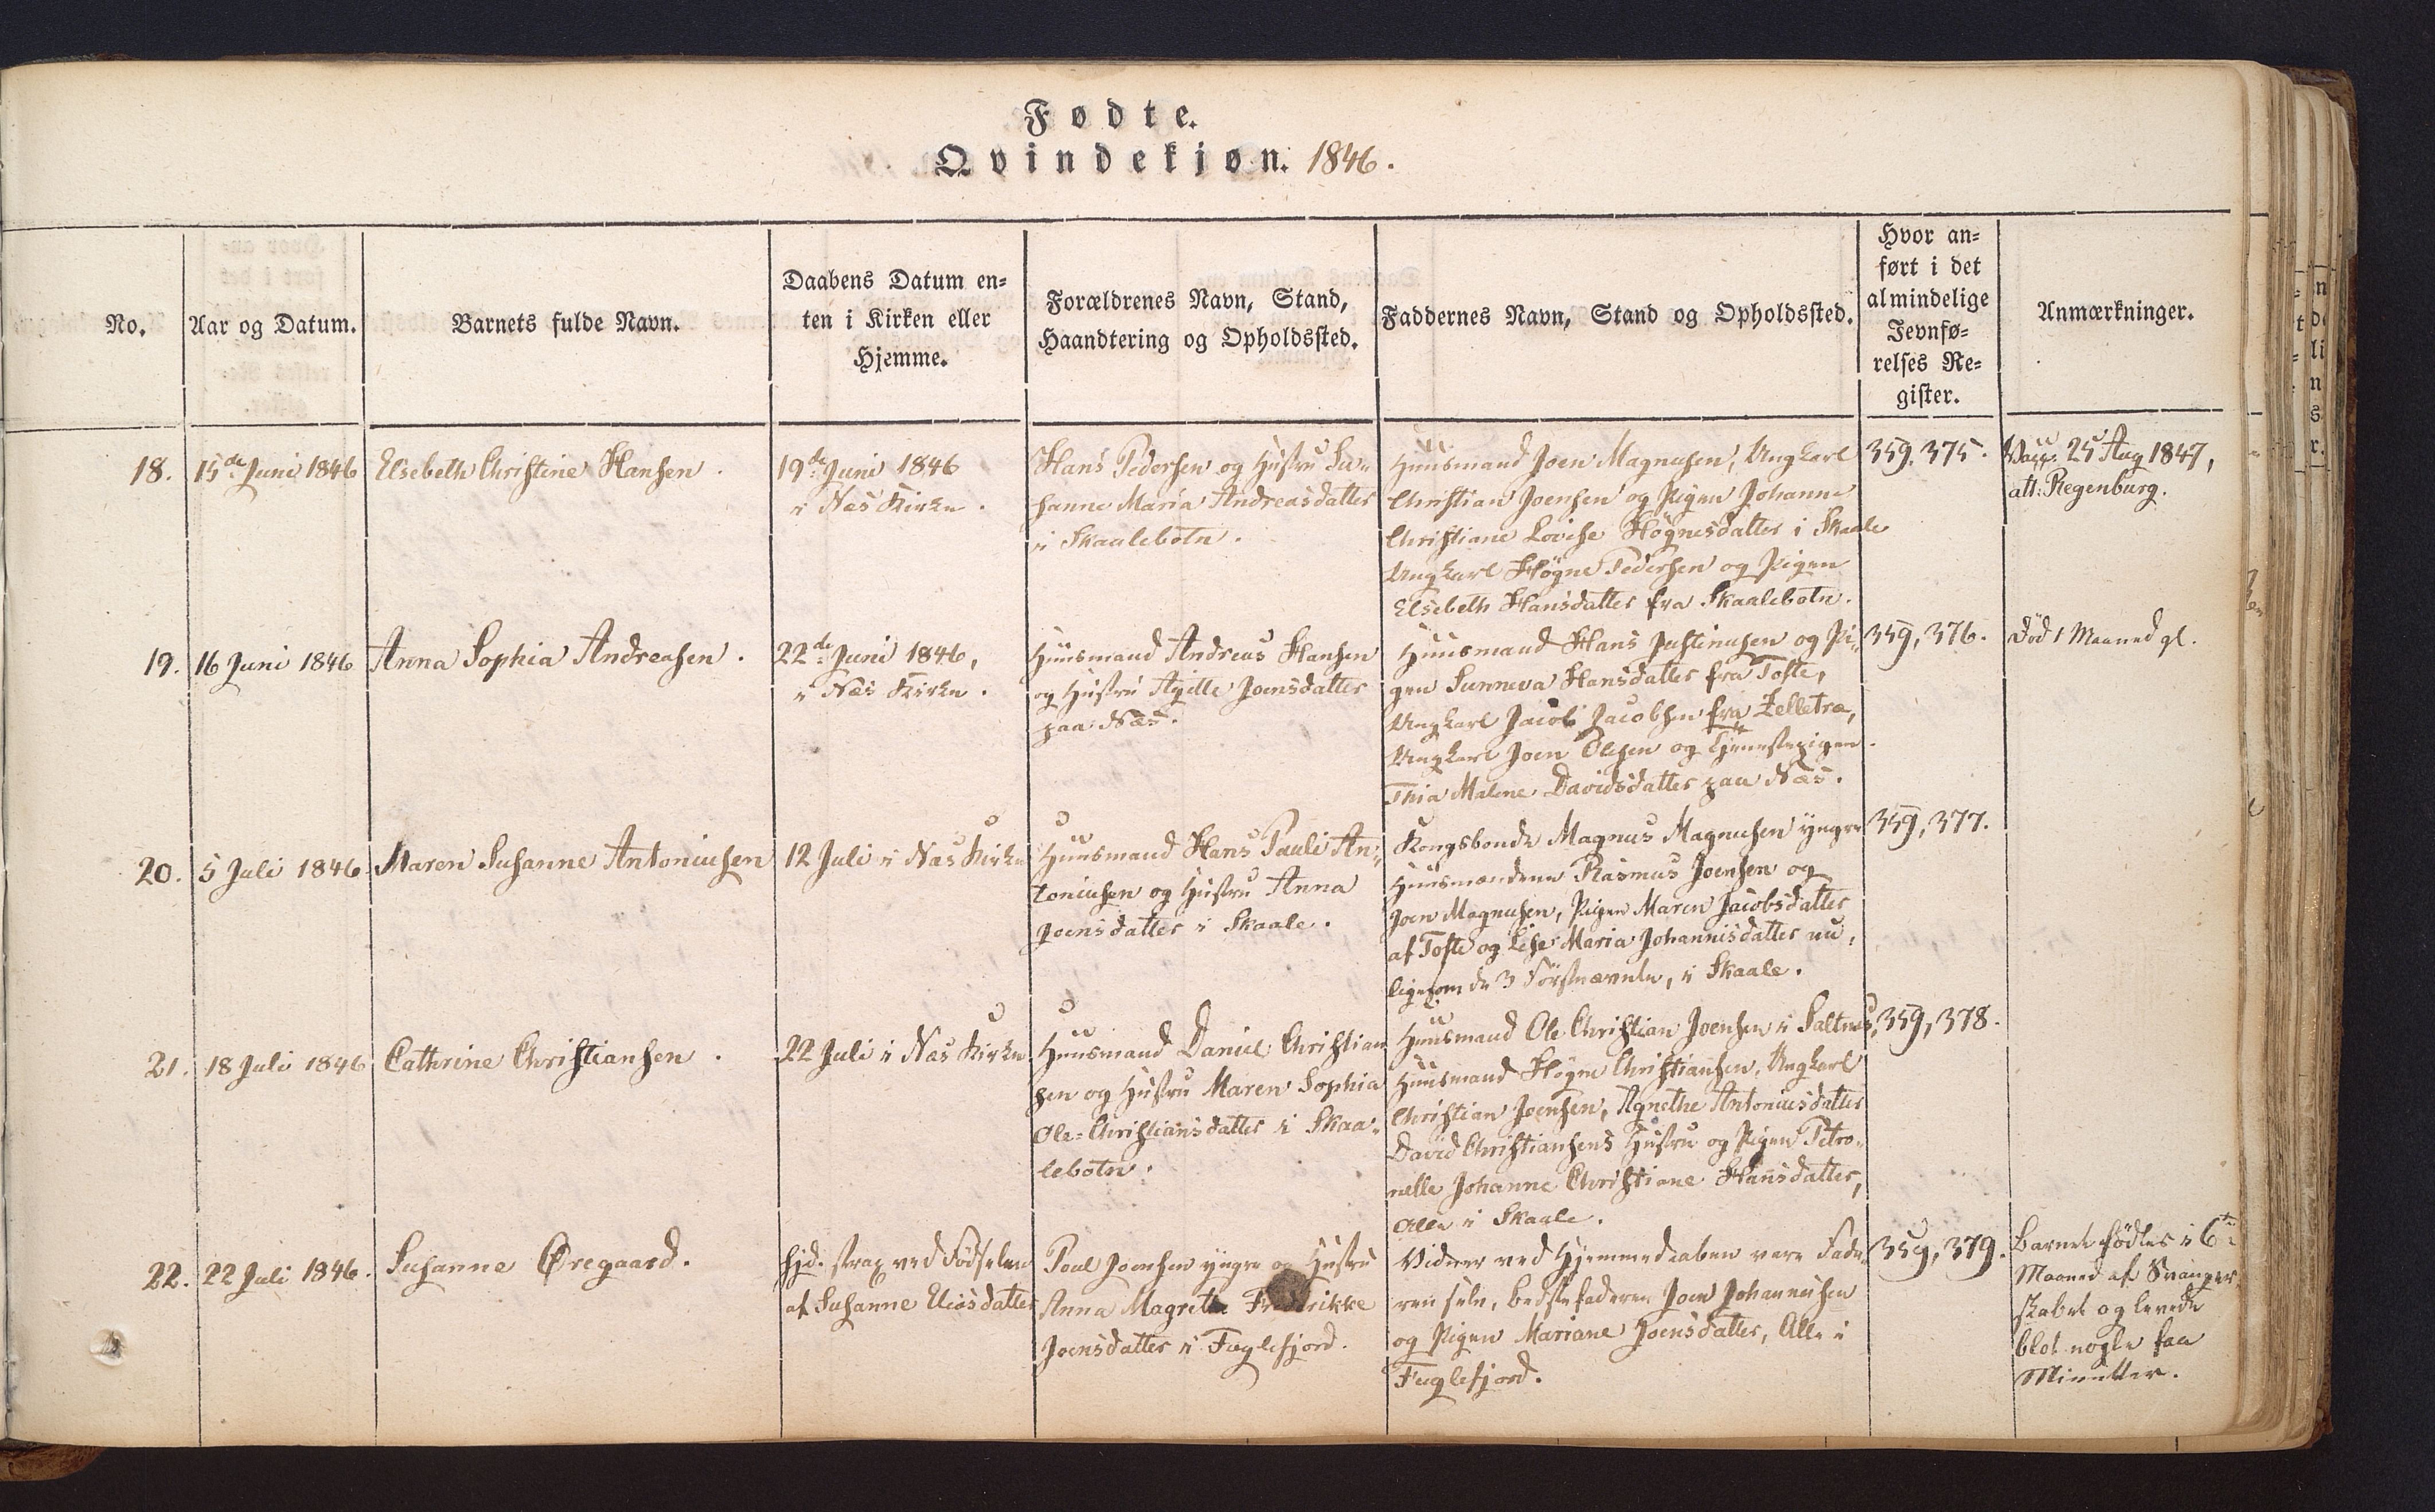 Fødte.
Qvindekjøn. 1846.
No.
Aar og Datum.
Barnets fulde Navn.
Daabens Datum en=
ten i Kirken eller
Hjemme.
Forældrenes Navn, Stand,
Haandtering og Opholdssted.
Faddernes Navn, Stand og Opholdssted.
Hvor an=
ført i det
almindelige
Jevnfø=
relses Re=
gister.
Anmærkninger.
18.
15de Juni 1846
Elsebeth Christine Hansen.
19de Juni 1846
i Næs Kirke.
Hans Pedersen og Hustru Su=
sanne Maria Andreasdatter
i Skaalebotn.
Huusmand Joen Magnusen, Ungkarl
Christian Joensen og Pigen Johanne
Christiane Lovise Högnesdatter i Skaale
Ungkarl Högne Pedersen og Pigen
Elsebeth Hansdatter fra Skaalebotn.
359, 375.
Vacc. 25 Aug 1847,
att. Regenburg.
19.
16 Juni 1846
Anna Sophia Andreasen.
22de Juni 1846,
i Næs Kirke.
Huusmand Andreas Hansen
og Hustru Joensdatter
paa Næs.
Huusmand Hans Justinusen og Pi=
gen Sunneva Hansdatter fra Tofte,
Ungkarl Jacob Jacobsen fra Zelletræ,
Ungkarl Joen Olesen og Tjenestepigen
Thia Malene Davidsdatter paa Næs.
359, 376.
Död 1 Maaned gl.
20.
5 Juli 1846
Maren Susanne Antoniusen
12 Juli i Næs Kirke
Huusmand Hans Pauli An=
toniusen og Hustru Anna
Joensdatter i Skaale.
Kongsbonde Magnus Magnusen yngre
Huusmændene Rasmus Joensen og
Joen Magnusen, Pigen Maren Jacobsdatter
af Tofte og Lise Maria Johannisdatter nu,
ligesom de 3 Förstnævnte, i Skaale.
359, 377.
21.
18 Juli 1846
Cathrine Christiansen.
22 Juli i Næs Kirke
Huusmand Daniel Christian
sen og Hustru Maren Sophia
Ole=Christiansdatter i Skaa=
lebotn.
Huusmand Ole Christian Joensen i Saltnes,
Huusmand Högne Christiansen, Ungkarl
Christian Joensen, Agnethe Antoniusdatter
David Christiansens Hustru og Pigen Petro=
nelle Johanne Christiane Hansdatter,
Alle i Skaale.
359, 378.
22.
22 Juli 1846.
Susanne Øregaard.
hjd. strax ved Födselen
af Susanne Eliasdatter
Poul Joensen yngre og Hustru
Anna Magrethe Fredrikke
Joensdatter i Fuglefjord.
Vidner ved Hjemmedaaben vare Fade=
ren selv, Bedstefaderen Joen Johannesen
og Pigen Mariane Joensdatter, Alle i
Fuglefjord.
359, 379.
Barnet födtes i 6te
Maaned af Svanger
skabet og levede
blot nogle faa
Minutter.